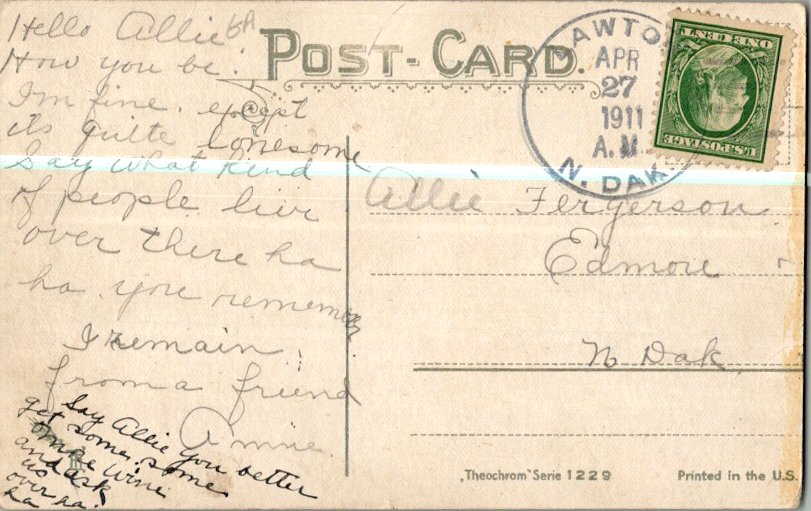 Hello Allie
How you be.
I'm fine. except
its quite lonesome
Say what kind
of people live
over there ha
ha. you remember
I remain,
from a friend
Annie.
Say Allie you better
get some, some
more wine
and ask
us
over ha.
ha
POST-CARD.
AWTO
APR
27
1911
A.M.
N. DAK
ONE CENT
U.S. POSTAGE
Allie Fergerson.
Edmore
N Dak.
„Theochrom" Serie 1229
Printed in the U.S.